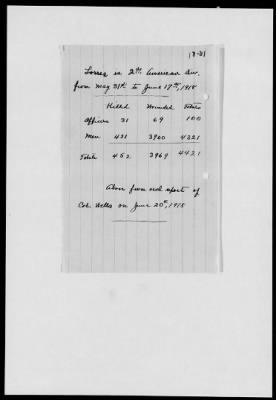 18-31
Losses in 2nd. American Div.
from May 31st. to June 17th, 1918
Killed Wounded Totals
Officers 31 69 100
Men 421 3900 4321
Totals 452 3969 4421
Above from oral report of
Col. Wells on June 20th, 1918